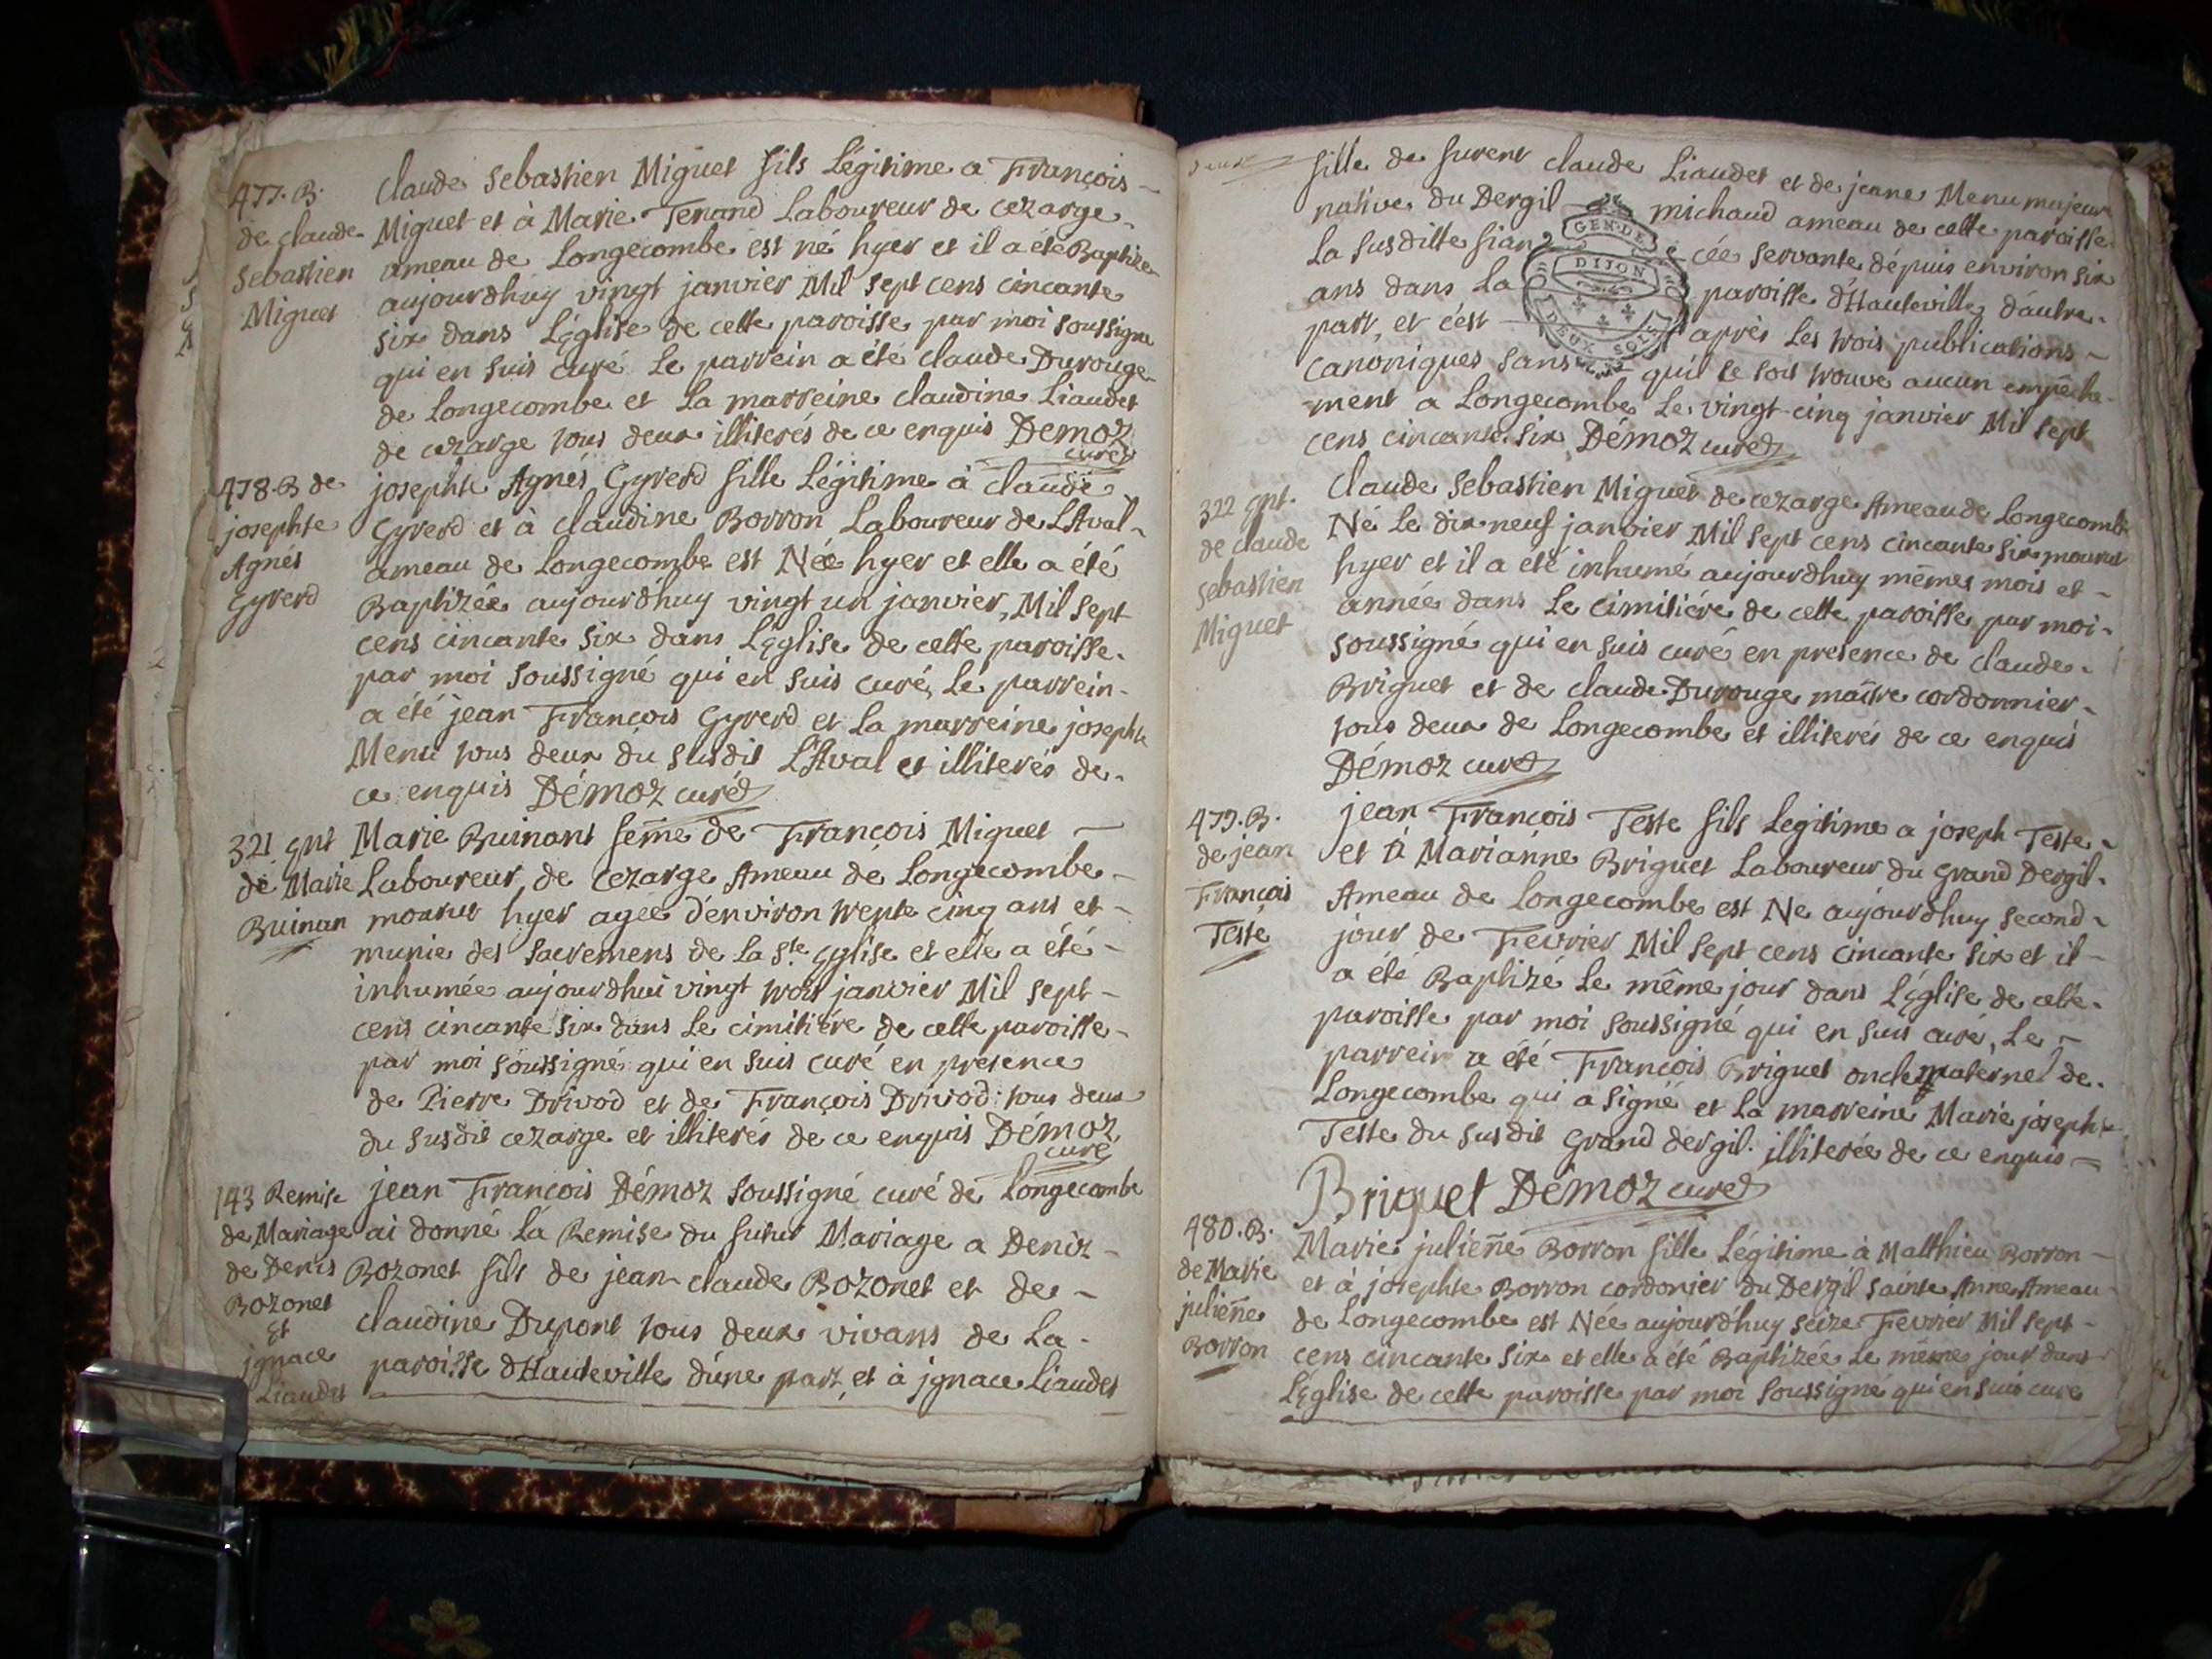 477. B.
de claude
Sebastien
Miguet
Claude Sebastien Miguet fils Légitime a François
Miguet et à Marie Tenand Laboureur de cezarge
ameau de Longecombe est né hyer et il a été Baptize
aujourdhuy vingt janvier Mil sept cens cincante
six dans L'Eglise de cette paroisse par moi soussigné
qui en suis curé Le parrein a été claude Durouge
de Longecombe et La marreine claudine Liaudet
de cezarge tous deux illiterés de ce enquis Démoz
curé
478. B de
josephte
Agnés
Gyrerd
josephte Agnés Gyrerd fille Légitime à claude
Gyrerd et à claudine Borron Laboureur de L'Aval
ameau de Longecombe est Née hyer et elle a été
Baptizée aujourdhuy vingt un janvier Mil sept
cens cincante six dans L'Eglise de cette paroisse
par moi soussigné qui en suis curé, Le parrein
a été jean François Gyrerd et La marreine josephte
Menu tous deux du susdit L'Aval et illiterés de
ce enquis Démoz curé
321 ent
de Marie
Buinan
Marie Buinant feme de François Miguet
Laboureur de Cezarge Ameau de Longecombe
mourut hyer agée d'environ trente cinq ans et
munie des sacremens de La Ste Eglise et elle a été
inhumée aujourdhui vingt trois janvier Mil sept
cens cincante six dans Le cimitiére de cette paroisse
par moi soussigné qui en suis curé en presence
de Pierre Drivod et de François Drivod tous deux
du susdit cezarge et illiterés de ce enquis Démoz
curé
143 Remise
de Mariage
de Denis
Bozonet
et
jgnace
Liaudet
jean François Démoz soussigné curé de Longecombe
ai donné La Remise du futur Mariage a Deniz
Bozonet fils de jean claude Bozonet et de
claudine Dupont tous deux vivans de La
paroisse d'Hauteville d'une part et à jgnace Liaudet
fille de furent claude Liaudet et de jeane Menu majeure
native du Dergil michaud ameau de cette paroisse
La susditte fian cée servante dépuis environ six
ans dans La paroisse d'Hauteville d'autre
part, et c'est après Les trois publications
canoniques sans qu'il se soit trouve aucun empêche
ment a Longecombe Le vingt cinq janvier Mil sept
cens cincante six Démoz curé
GEN. DE
DIJON
DEUX SOLS
322 ent.
de claude
Sebastien
Miguet
Claude Sebastien Miguet de cezarge Ameau de Longecombe
Né Le dix neuf janvier Mil sept cens cincante six mourut
hyer et il a été inhumé aujourdhuy mêmes mois et
année dans Le cimitiére de cette paroisse par moi
soussigné qui en suis curé en presence de claude
Briguet et de claude Durouge maître cordonnier
tous deux de Longecombe et illiterés de ce enquis
Démoz curé
479. B.
de jean
François
Teste
jean François Teste fils Legitime a joseph Teste
et à Marianne Briguet Laboureur du Grand Dergil
Ameau de Longecombe est Ne aujourdhuy second
jour de Fevrier Mil sept cens cincante six et il
a été Baptizé Le même jour dans L'Eglise de cette
paroisse par moi soussigné qui en suis curé, Le
parrein a été François Briguet oncle maternel de
Longecombe qui a signé et La marreine Marie josephte
Teste du susdit Grand dergil illiterée de ce enquis
Briguet Démoz curé
480. B.
de Marie
julieñe
Borron
Marie julieñe Borron fille Légitime à Matthieu Borron
et à josephte Borron cordonier du Dergil sainte Anne Ameau
de Longecombe est Née aujourdhuy seize Fevrier Mil sept
cens cincante six et elle a été Baptizée Le même jour dans
L'Eglise de cette paroisse par moi soussigné qui en suis curé